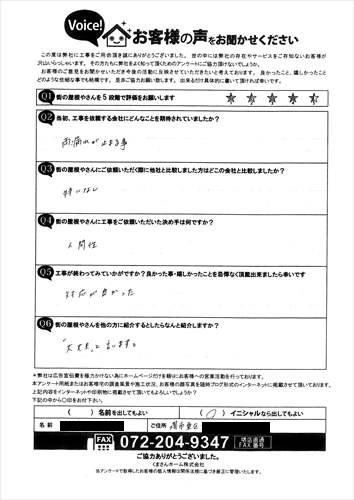 Voice!
お客様の声をお聞かせください
この度は弊社に工事をご用命頂き誠にありがとうございました。世の中には弊社の存在やサービスをご存知ないお客様が
沢山いらっしゃいます。その方たちにも弊社をよく知って頂くためのアンケートにご協力頂けないでしょうか。
お客様のご意見をお聞かせいただき今後の活動に反映させていただきたいと考えております。良かったこと、嬉しかったこと
どのような些細な事でも結構です。是非ご協力お願い致します。出来るだけ具体的に書いて頂ければ幸いです。
Q1 街の屋根やさんを5段階で評価をお願いします
Q2 当初、工事を依頼する会社にどんなことを期待されていましたか？
雨漏れが止まる事
Q3 街の屋根やさんにご依頼いただく際に他社と比較しました方はどこの会社と比較しましたか？
特になし
Q4 街の屋根やさんに工事をご依頼いただいた決め手は何ですか？
人間性
Q5 工事が終わってみていかがですか？良かった事・嬉しかったことを忌憚なく頂戴出来ましたら幸いです
対応が良かった
Q6 街の屋根やさんを他の方に紹介するとしたらなんと紹介しますか？
「大丈夫」と言います。
＊弊社は広告宣伝費を極力かけない為にホームページだけを頼りにお客様への営業活動を行っております。
本アンケート用紙またはお客様宅の調査風景や施工状況、お客様の顔写真を随時ブログ形式のインターネットに掲載させて頂いております。
上記内容をインターネットや印刷物に掲載させて頂いてもよろしいでしょうか？
下記の中から○印をお付け下さい。
（ ）名前を出してもよい （○）イニシャルなら出してもよい
名前 ご住所 堺市東区
FAX 072-204-9347 堺店直通 FAX番号
ご協力ありがとうございました。
くまさんホーム株式会社
当アンケートで取得したお客様の個人情報は関係法規に基づき厳正に管理いたします。